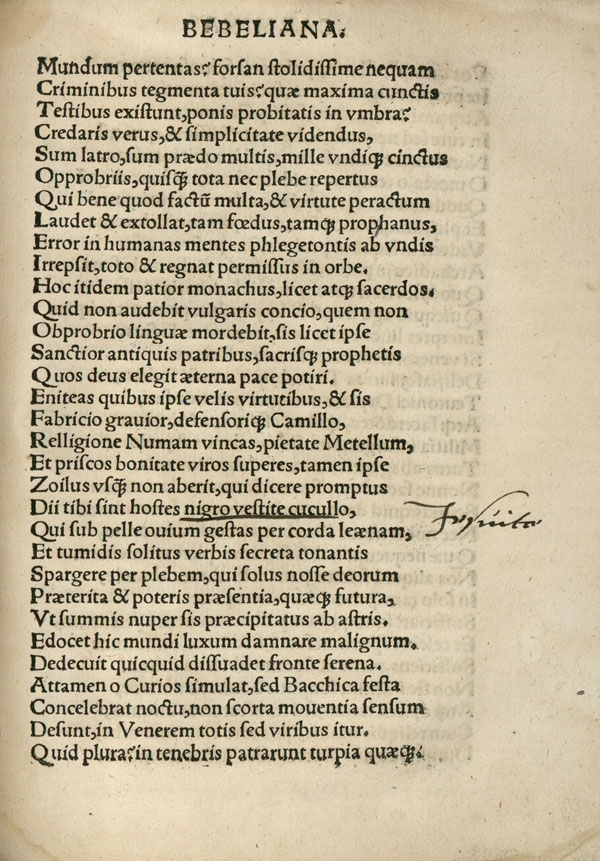 BEBELIANA.
Mundum pertentas? forsan stolidissime nequam
Criminibus tegmenta tuis? quæ maxima cunctis
Testibus existunt, ponis probitatis in vmbra?
Credaris verus, & simplicitate videndus,
Sum latro, sum prædo multis, mille vndiqꝫ cinctus
Opprobriis, quisqꝫ tota nec plebe repertus
Qui bene quod factũ multa, & virtute peractum
Laudet & extollat, tam fœdus, tamqꝫ prophanus,
Error in humanas mentes phlegetontis ab vndis
Irrepsit, toto & regnat permissus in orbe.
Hoc itidem patior monachus, licet atqꝫ sacerdos.
Quid non audebit vulgaris concio, quem non
Obprobrio linguæ mordebit, sis licet ipse
Sanctior antiquis patribus, sacrisqꝫ prophetis
Quos deus elegit æterna pace potiri.
Eniteas quibus ipse velis virtutibus, & sis
Fabricio grauior, defensoriqꝫ Camillo,
Relligione Numam vincas, pietate Metellum,
Et priscos bonitate viros superes, tamen ipse
Zoilus vsqꝫ non aberit, qui dicere promptus
Dii tibi sint hostes nigro vestite cucullo,
Qui sub pelle ouium gestas per corda leænam,
Jesuita
Et tumidis solitus verbis secreta tonantis
Spargere per plebem, qui solus nosse deorum
Præterita & poteris præsentia, quæqꝫ futura,
Vt summis nuper sis præcipitatus ab astris.
Edocet hic mundi luxum damnare malignum.
Dedecuit quicquid dissuadet fronte serena.
Attamen o Curios simulat, sed Bacchica festa
Concelebrat noctu, non scorta mouentia sensum
Desunt, in Venerem totis sed viribus itur.
Quid plura? in tenebris patrarunt turpia quæqꝫ.